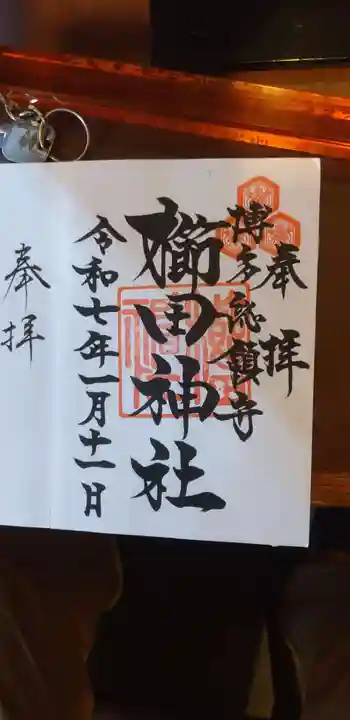 奉拝
博多総鎮守
櫛田神社
令和七年一月十一日
奉拝